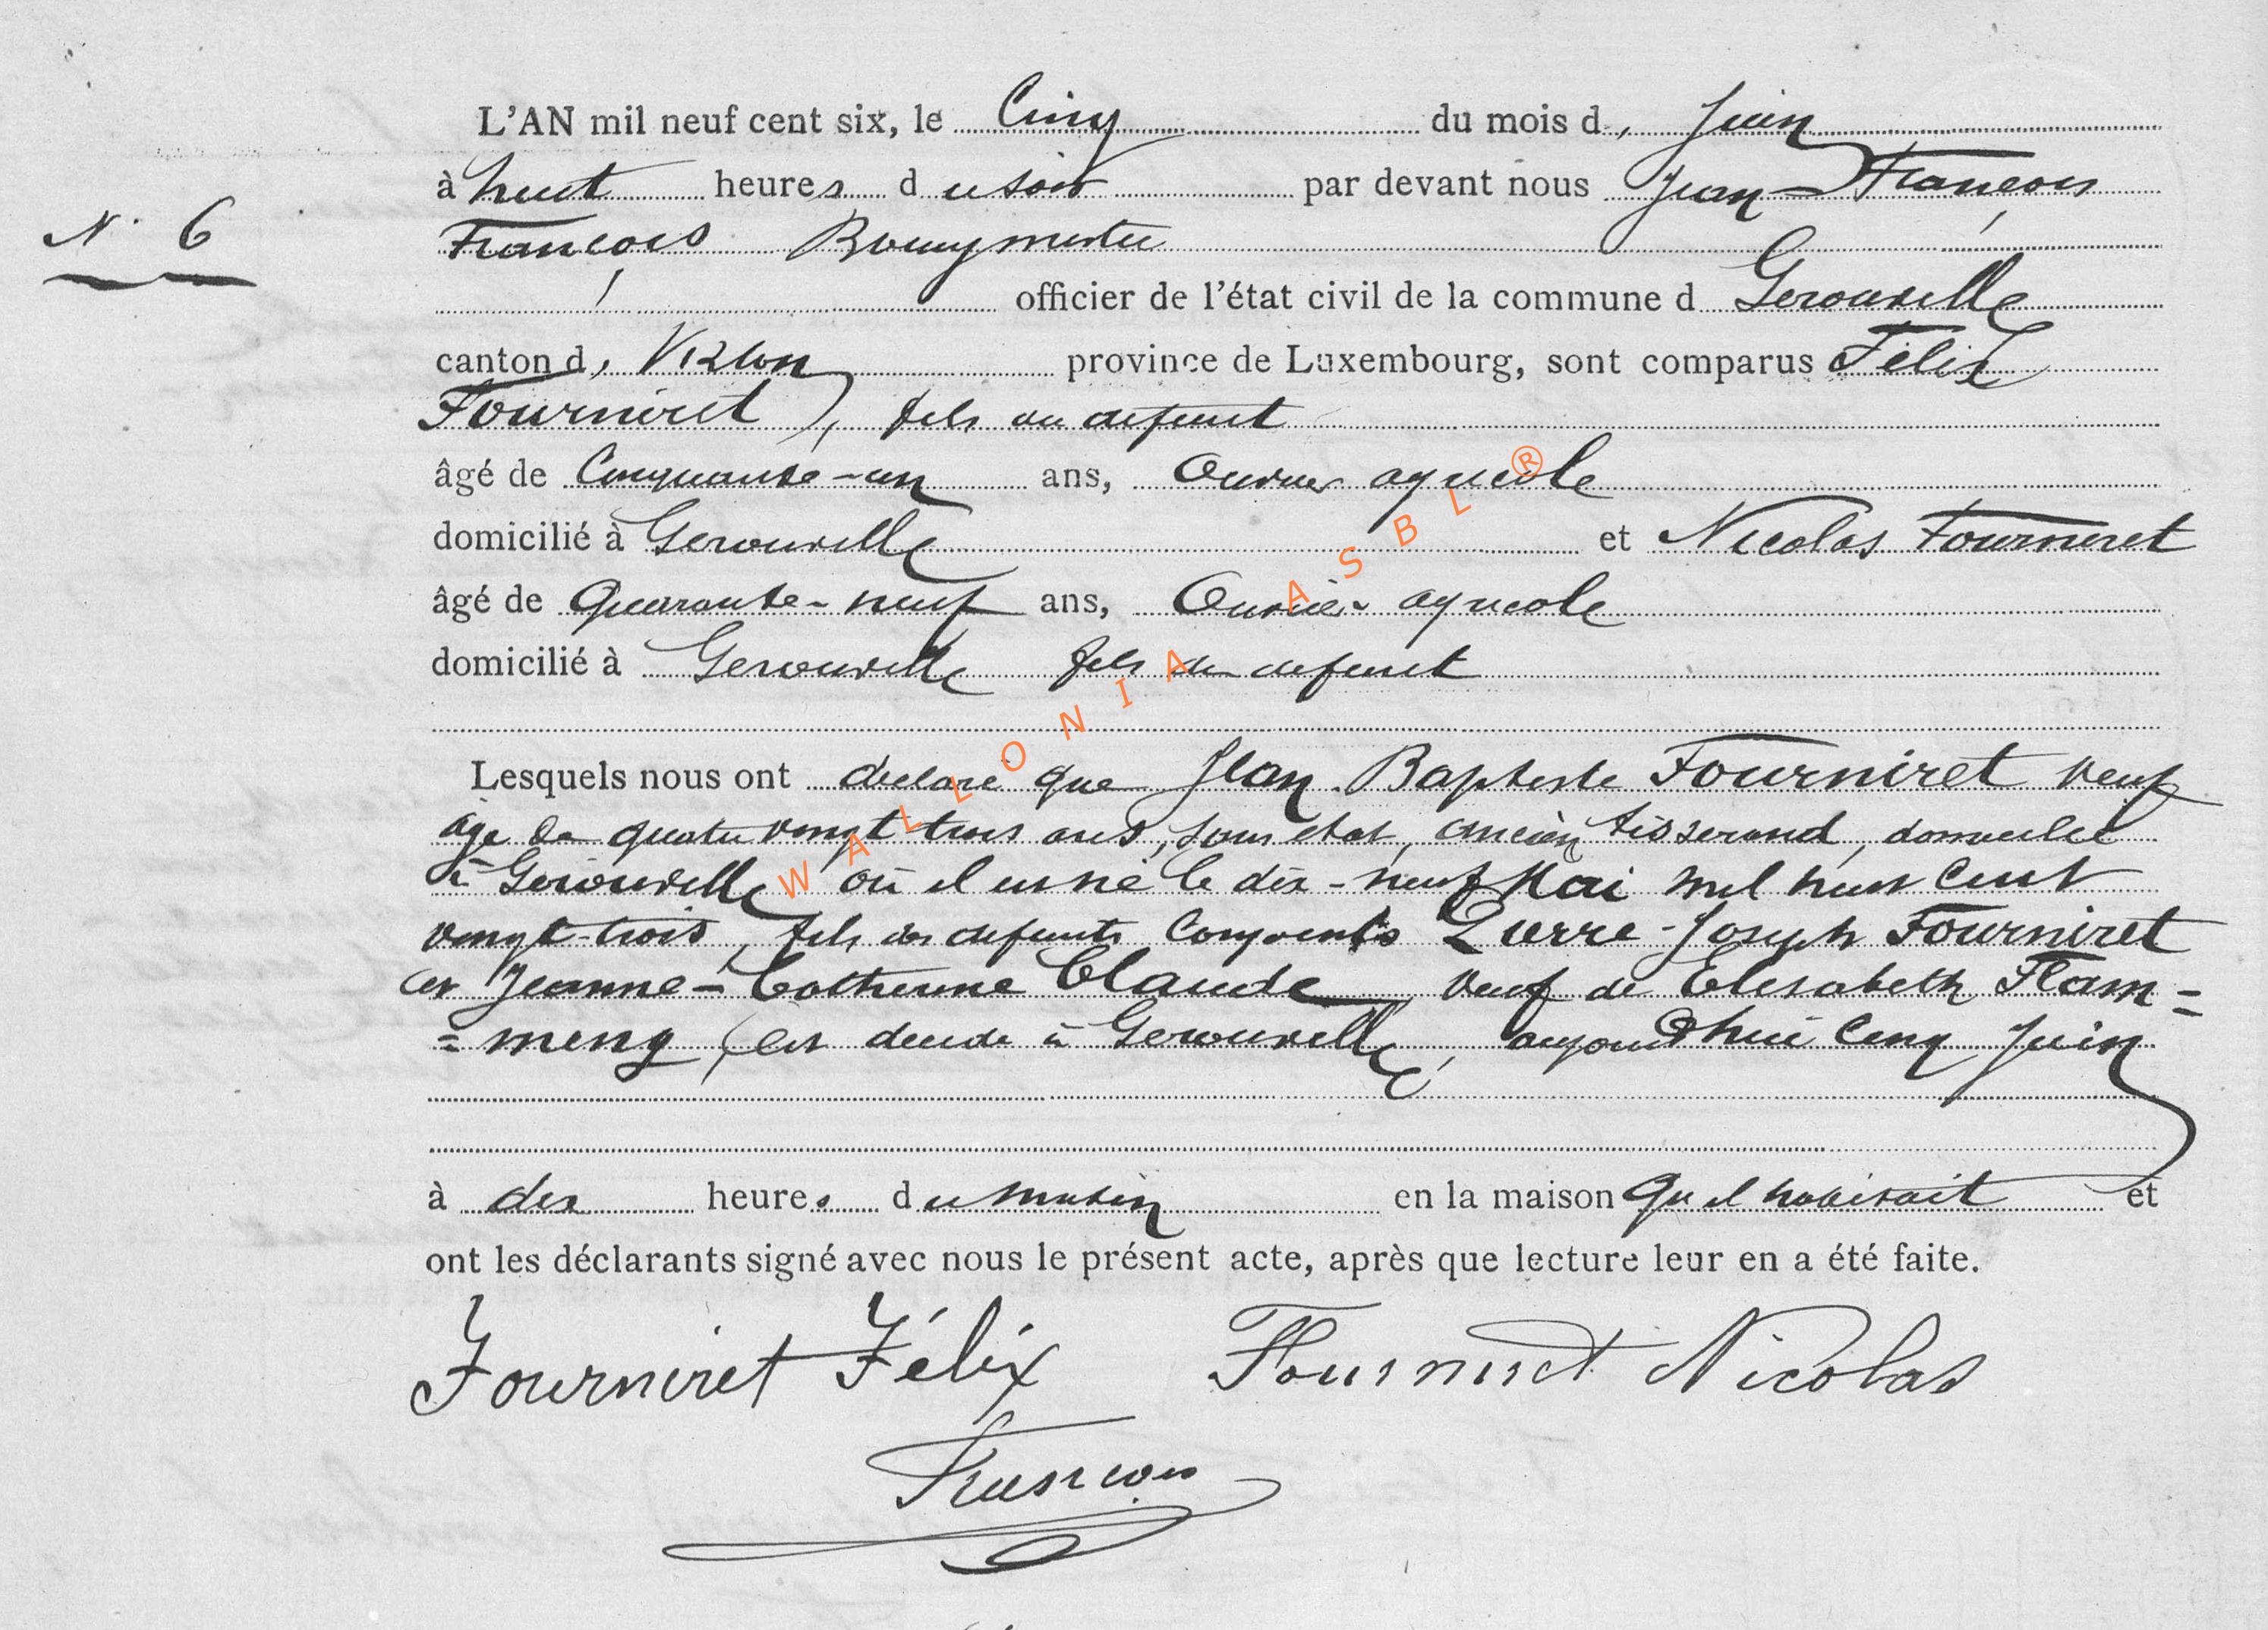 L'AN mil neuf cent six, le Cinq du mois d, Juin
à huit heures du soir par devant nous Jean-François
N. 6
François Bourgmestre
officier de l'état civil de la commune d Gerouville
canton d, Virton province de Luxembourg, sont comparus Félix
Fourniret, fils du defunt
âgé de Cinquante-un ans, Ouvrier agricole
domicilié à Gerouville et Nicolas Fourniret
âgé de Quarante-neuf ans, Ouvrier agricole
domicilié à Gerouville fils du defunt
Lesquels nous ont declaré que Jean Baptiste Fourniret veuf
âgé de quatre vingt trois ans, sans état, ancien tisserand, domicilié
à Gerouville où il est né le dix-neuf Mai mil huit Cent
vingt-trois, fils des defunts Conjoints Pierre-Joseph Fourniret
et Jeanne-Catherine Claude, veuf de Elisabeth Flam=
=meng, est décédé à Gerouville, aujourd'hui Cinq Juin
à dix heures du matin en la maison qu'il habitait et
ont les déclarants signé avec nous le présent acte, après que lecture leur en a été faite.
Fourniret Félix Fourniret Nicolas
François
WALLONIA ASBL ®